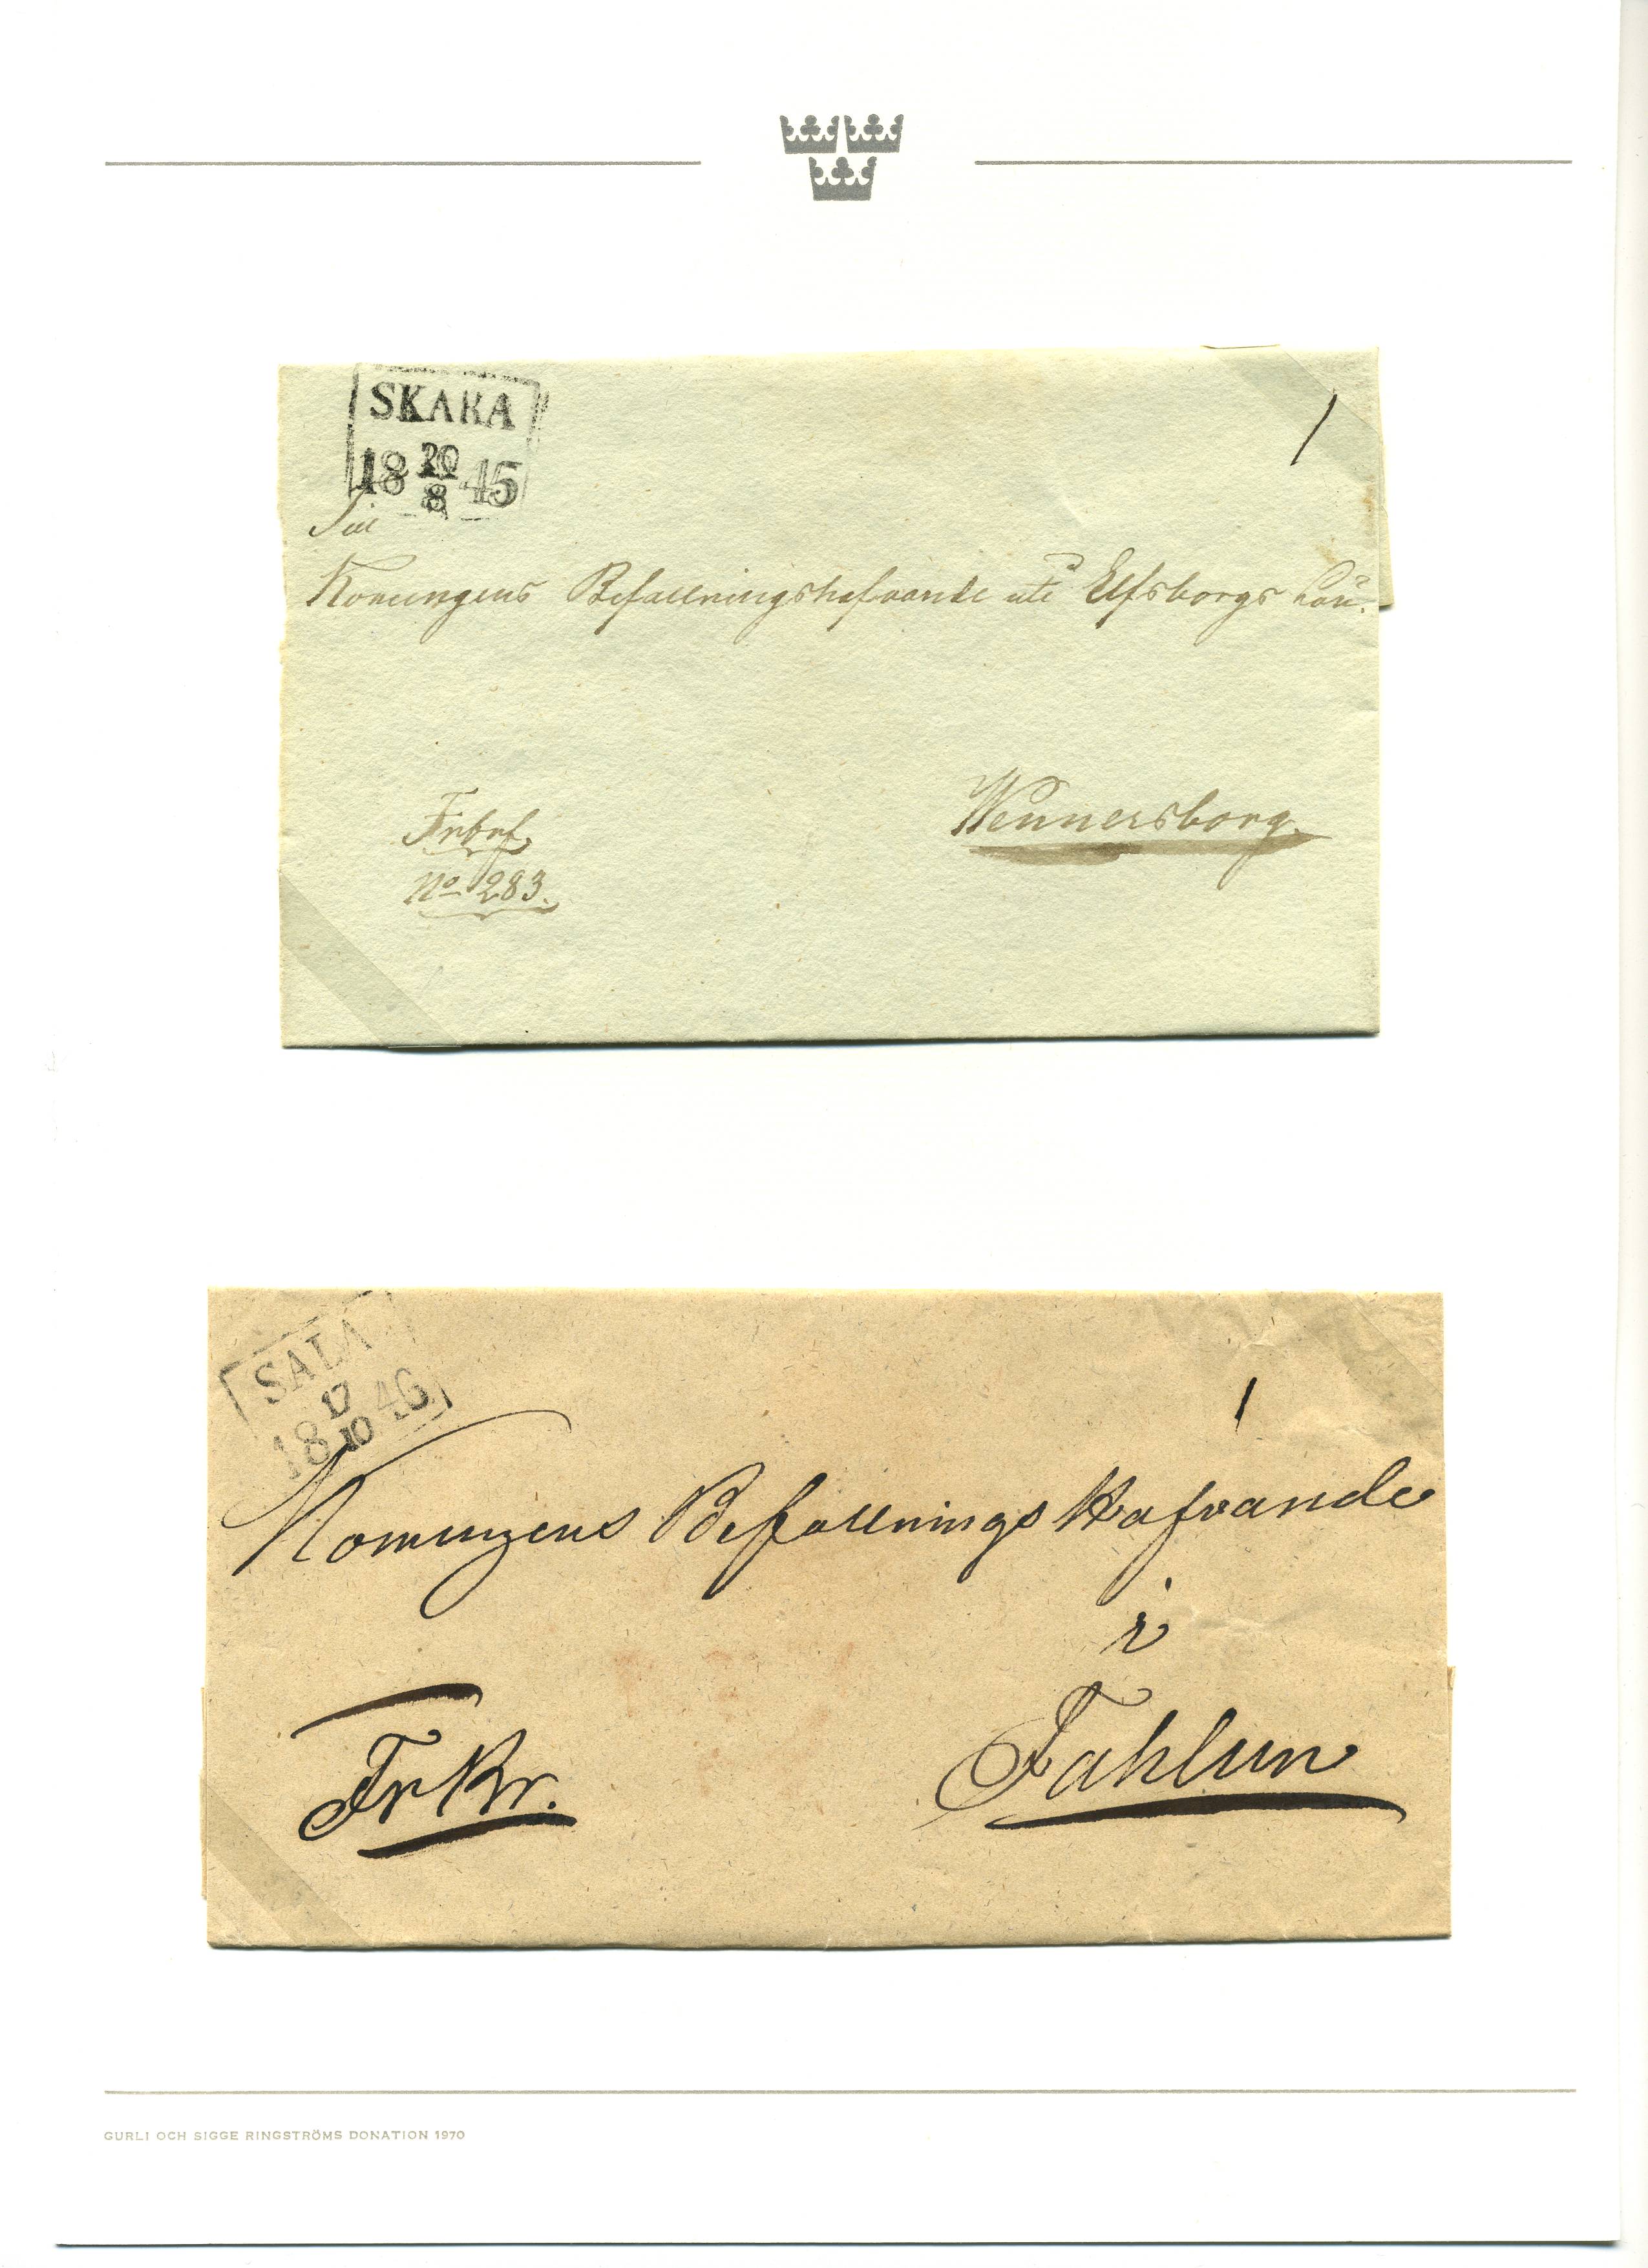 SKARA
18 20/8 45
Till
Konungens Befallningshafvande uti Elfsborgs Län.
Wennersborg.
Frbrf
No 283.
1
SALA
18 17/10 46
1
Konungens Befallnings Hafvande
i
Fahlun
FrBr.
GURLI OCH SIGGE RINGSTRÖMS DONATION 1970